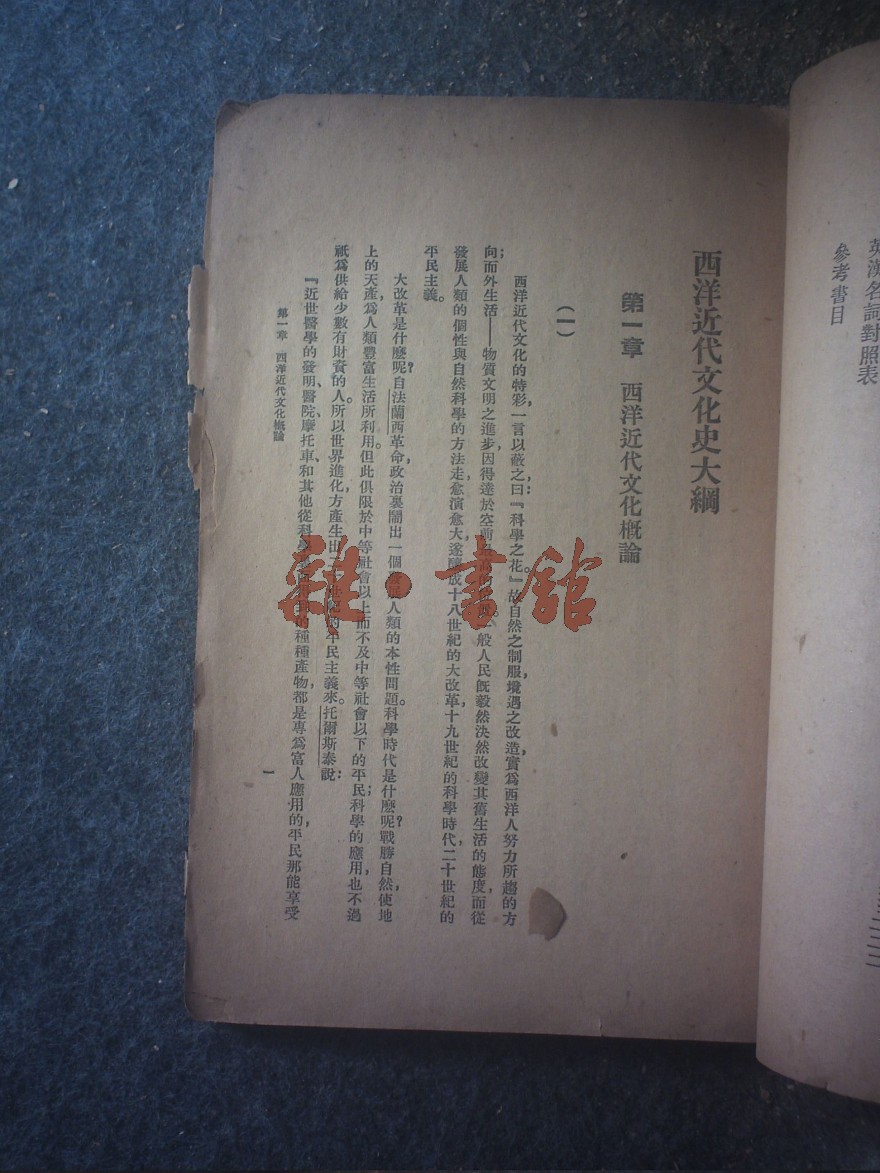 英漢名詞對照表
參考書目
西洋近代文化史大綱
第一章 西洋近代文化概論
(一)
西洋近代文化的特彩,一言以蔽之曰:『科學之花。』故自然之制服,境遇之改造,實爲西洋人努力所趨的方
向;而外生活——物質文明之進步,因得達於空前最高的位置。一般人民旣毅然決然改變其舊生活的態度,而從
發展人類的個性與自然科學的方法走,愈演愈大,遂釀成十八世紀的大改革,十九世紀的科學時代,二十世紀的
平民主義。
大改革是什麽呢?自法蘭西革命,政治裏鬧出一個發展人類的本性問題。科學時代是什麽呢?戰勝自然,使地
上的天產,爲人類豐富生活所利用。但此俱限於中等社會以上,而不及中等社會以下的平民;科學的應用,也不過
祇爲供給少數有財資的人。所以世界進化,方產生出二十世紀的平民主義來。托爾斯泰說:
『近世醫學的發明、醫院、摩托車、和其他從科學的種種產物,都是專爲富人應用的,平民那能享受
第一章 西洋近代文化概論
一
雜·書館